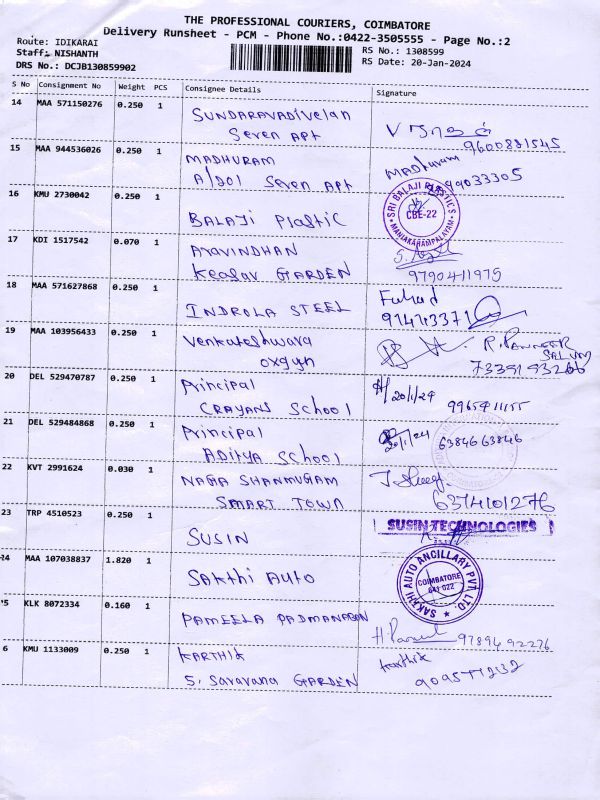 THE PROFESSIONAL COURIERS, COIMBATORE
Delivery Runsheet - PCM - Phone No.:0422-3505555 - Page No.:2
Route: IDIKARAI
Staff: NISHANTH
DRS No.: DCJB130859902
RS No.: 1308599
RS Date: 20-Jan-2024
S No Consignment No Weight PCS Consignee Details Signature
14 MAA 571150276 0.250 1 SUNDARAVADIVELAN
Seven APt
9600881545
15 MAA 944536026 0.250 1 MADHURAM
A/201 Seven APt
Madhuram
99033305
16 KMU 2730042 0.250 1 BALAJI Plastic
SRI BALAJI PLASTIC'S
CBE-22
MANIAKARAMPALAYAM
17 KDI 1517542 0.070 1 ARAVINDHAN
GARDEN
9790411975
18 MAA 571627868 0.250 1 INDROLA STEEL
Fahad
19 MAA 103956433 0.250 1 Venkateshwara
oxgyn
R. PANNEER
SALVM
20 DEL 529470787 0.250 1 Principal
CRAYANS School
20/1/24
21 DEL 529484868 0.250 1 Principal
ADITYA School
20/1/24
6384663846
22 KVT 2991624 0.030 1 NAGA SHANMUGAM
SMART TOWN
6374101276
23 TRP 4510523 0.250 1 SUSIN
SUSIN TECHNOLOGIES
24 MAA 107038837 1.820 1 SAKTHI AUTO
SAKTHI AUTO ANCILLARY PVT. LTD.
COIMBATORE
641 022
25 KLK 8072334 0.160 1 PAMEELA PADMANABAN
9789492276
6 KMU 1133009 0.250 1 KARTHIK
5, Saravana GARDEN
Karthik